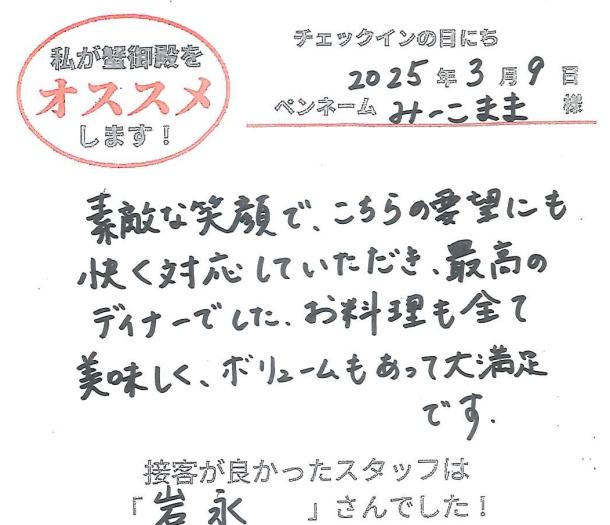 私が蟹御殿を
オススメ
します！
チェックインの日にち
2025年3月9日
ペンネーム みーこまま 様
素敵な笑顔で、こちらの要望にも
快く対応していただき、最高の
ディナーでした。お料理も全て
美味しく、ボリュームもあって大満足
です。
接客が良かったスタッフは
「岩永 」さんでした！